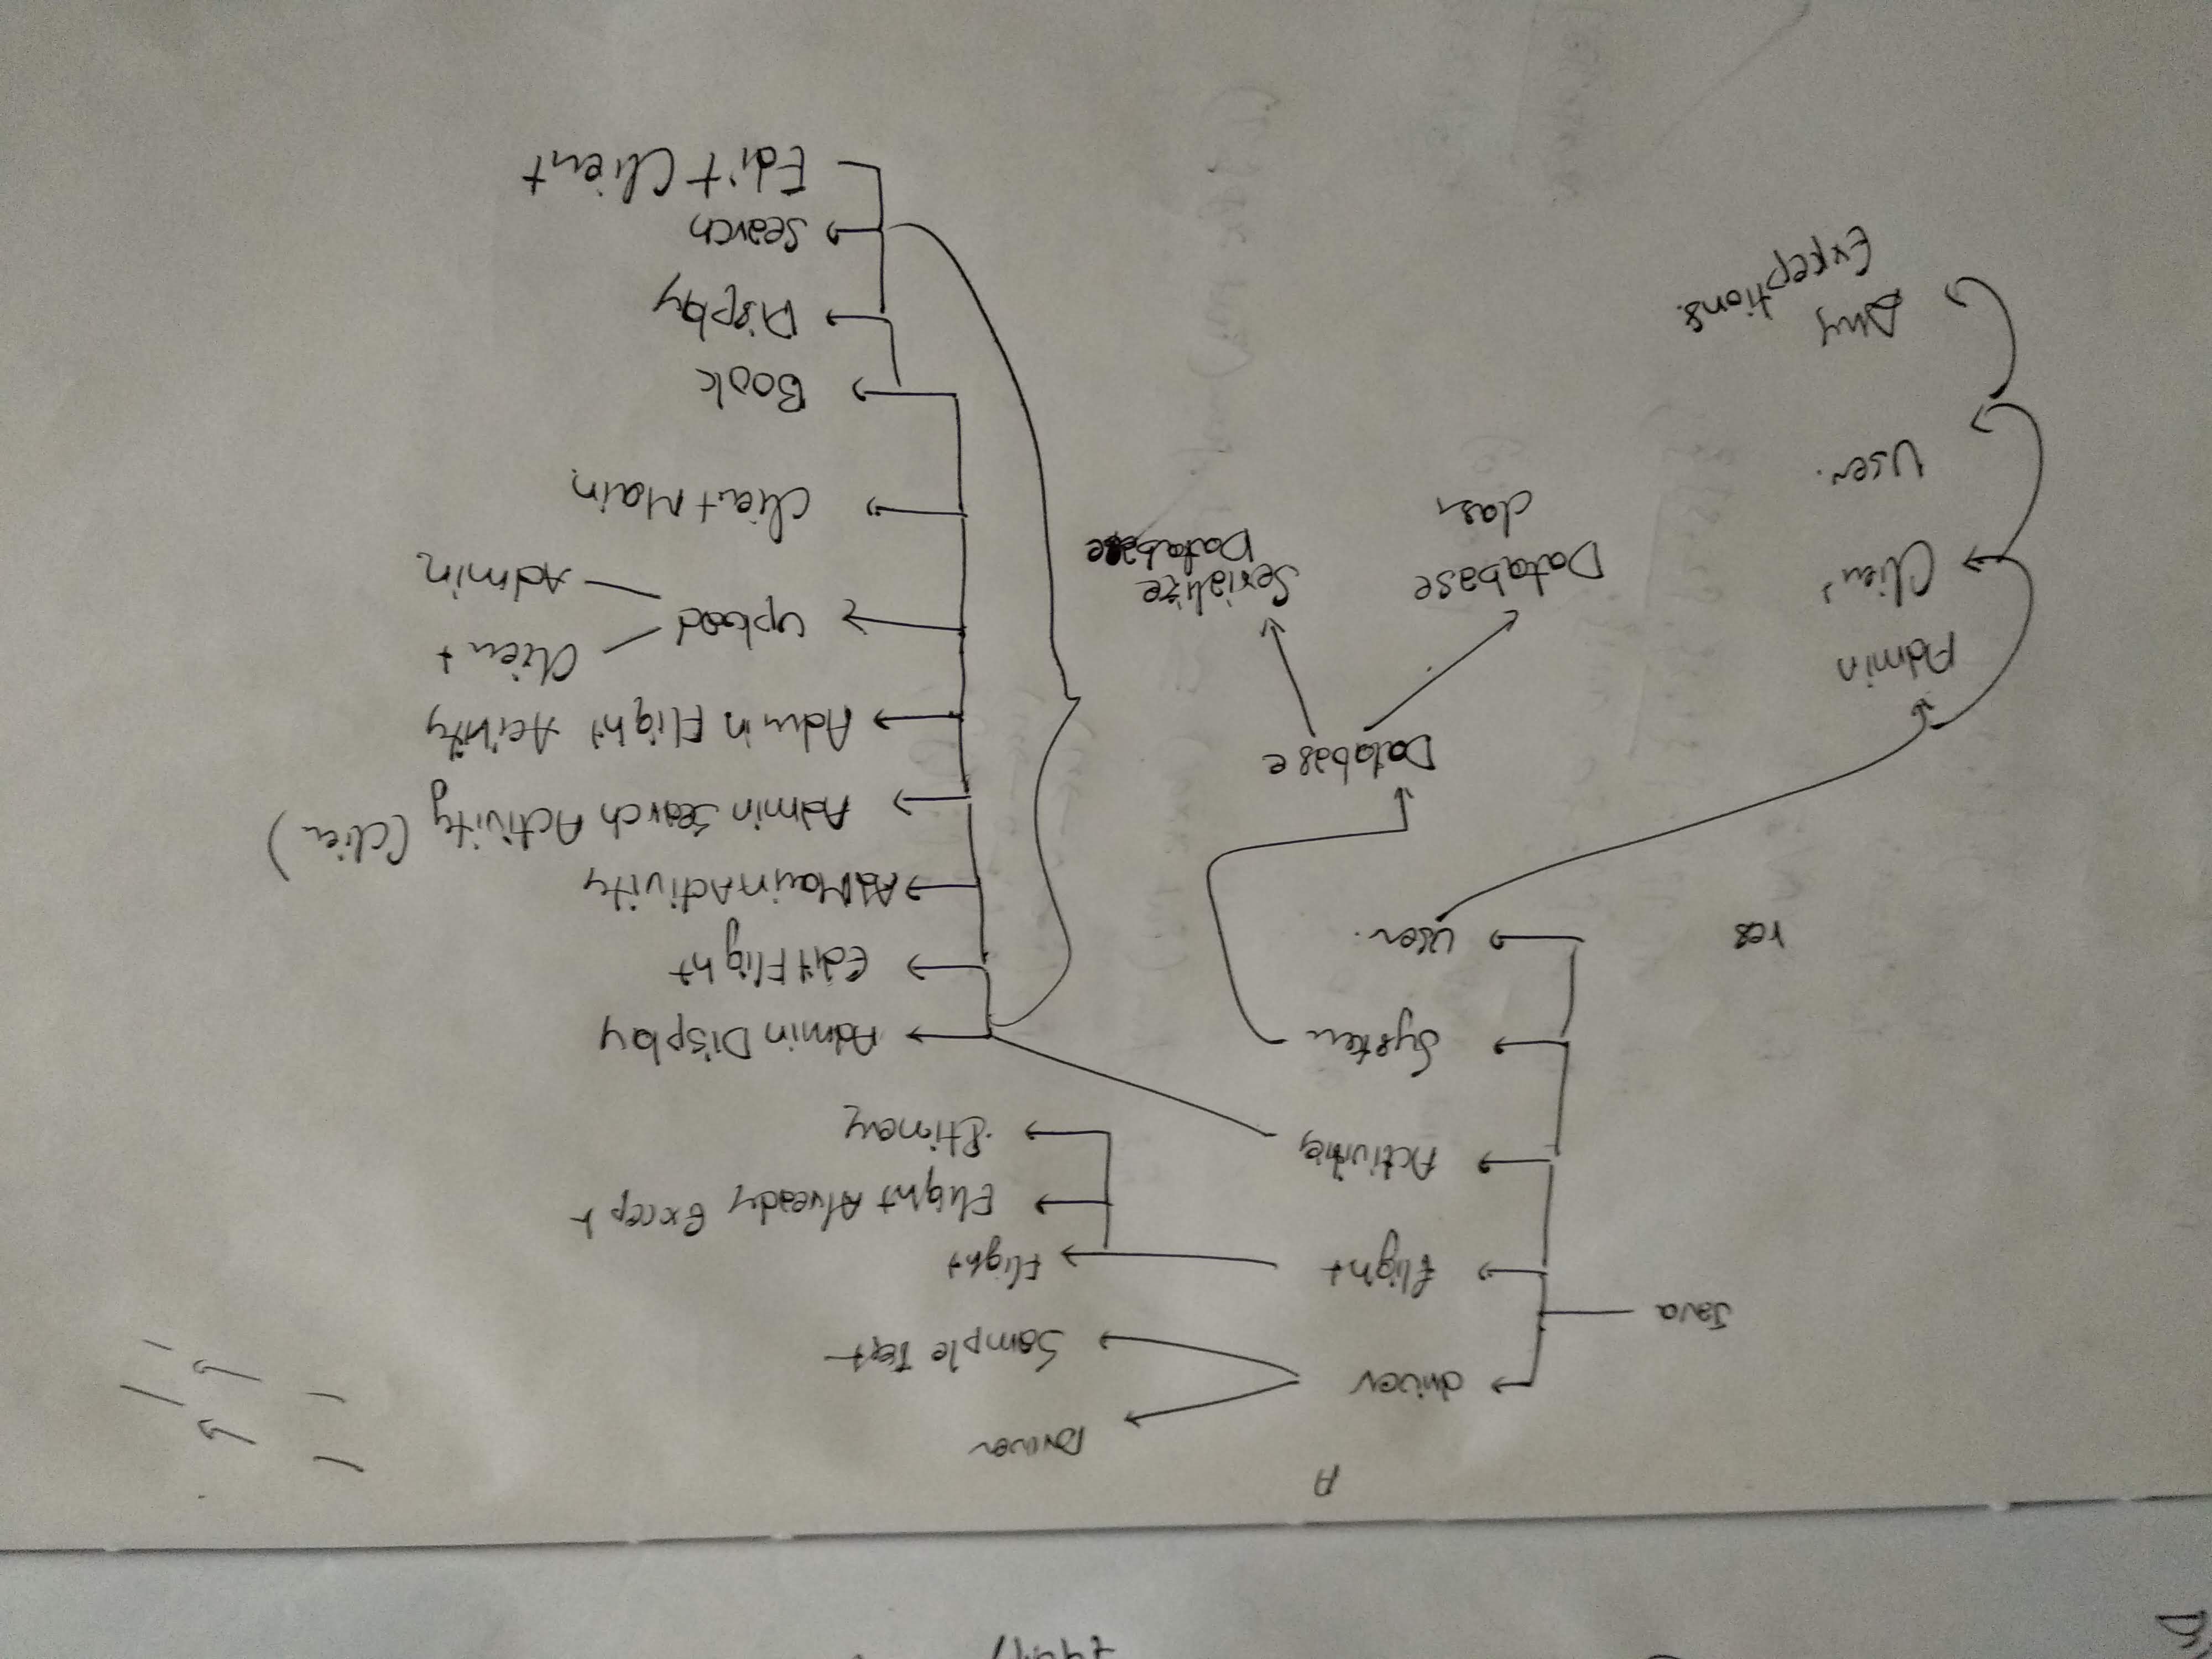 A
Java
driver
Driver
Sample Test
flight
Flight
Flight Already Except
Activities
System
User.
res
Admin Display
Edit Flight
AdMainActivity
Admin Search Activity (Clien)
Admin Flight Acivity
upload
Client
Admin
Client Main
Book
Display
Search
Edit Client
Database
Database
class
Serialize
Database
Admin
Client
User.
Any
Exceptions.